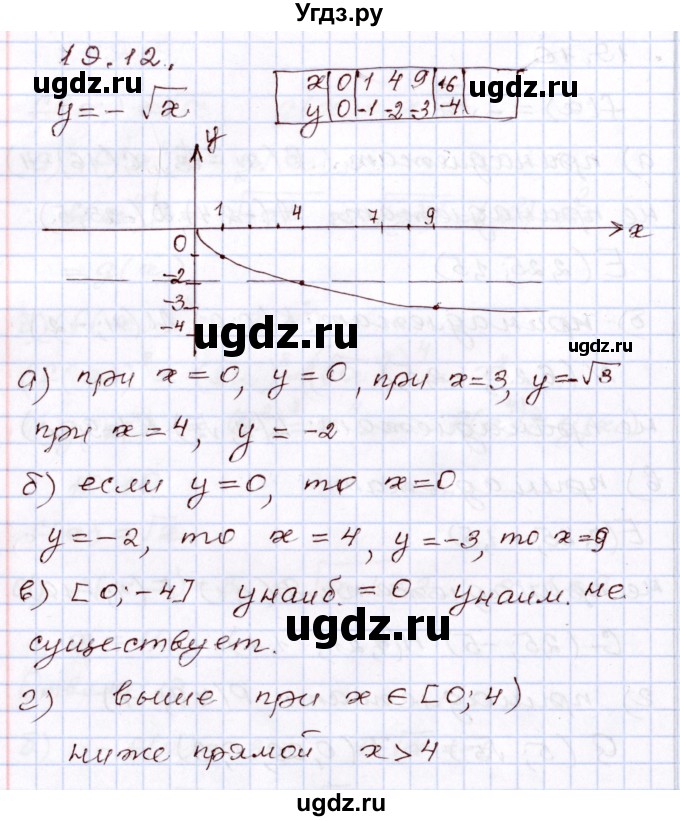 Угдз.ру
19.12.
ugdz.ru
y = - √x
x 0 1 4 9 16
y 0 -1 -2 -3 -4
ugdz.ru
y
1 4 7 9 x
0
-2
-3
-4
ugdz.ru
а) при x = 0, y = 0, при x = 3, y = -√3
при x = 4, y = -2
б) если y = 0, то x = 0
y = -2, то x = 4, y = -3, то x = 9
в) [0; -4] yнаиб. = 0 yнаим. не
ugdz.ru
существует.
г) выше при x ∈ [0; 4)
ниже прямой x > 4
ugdz.ru
ugdz.ru